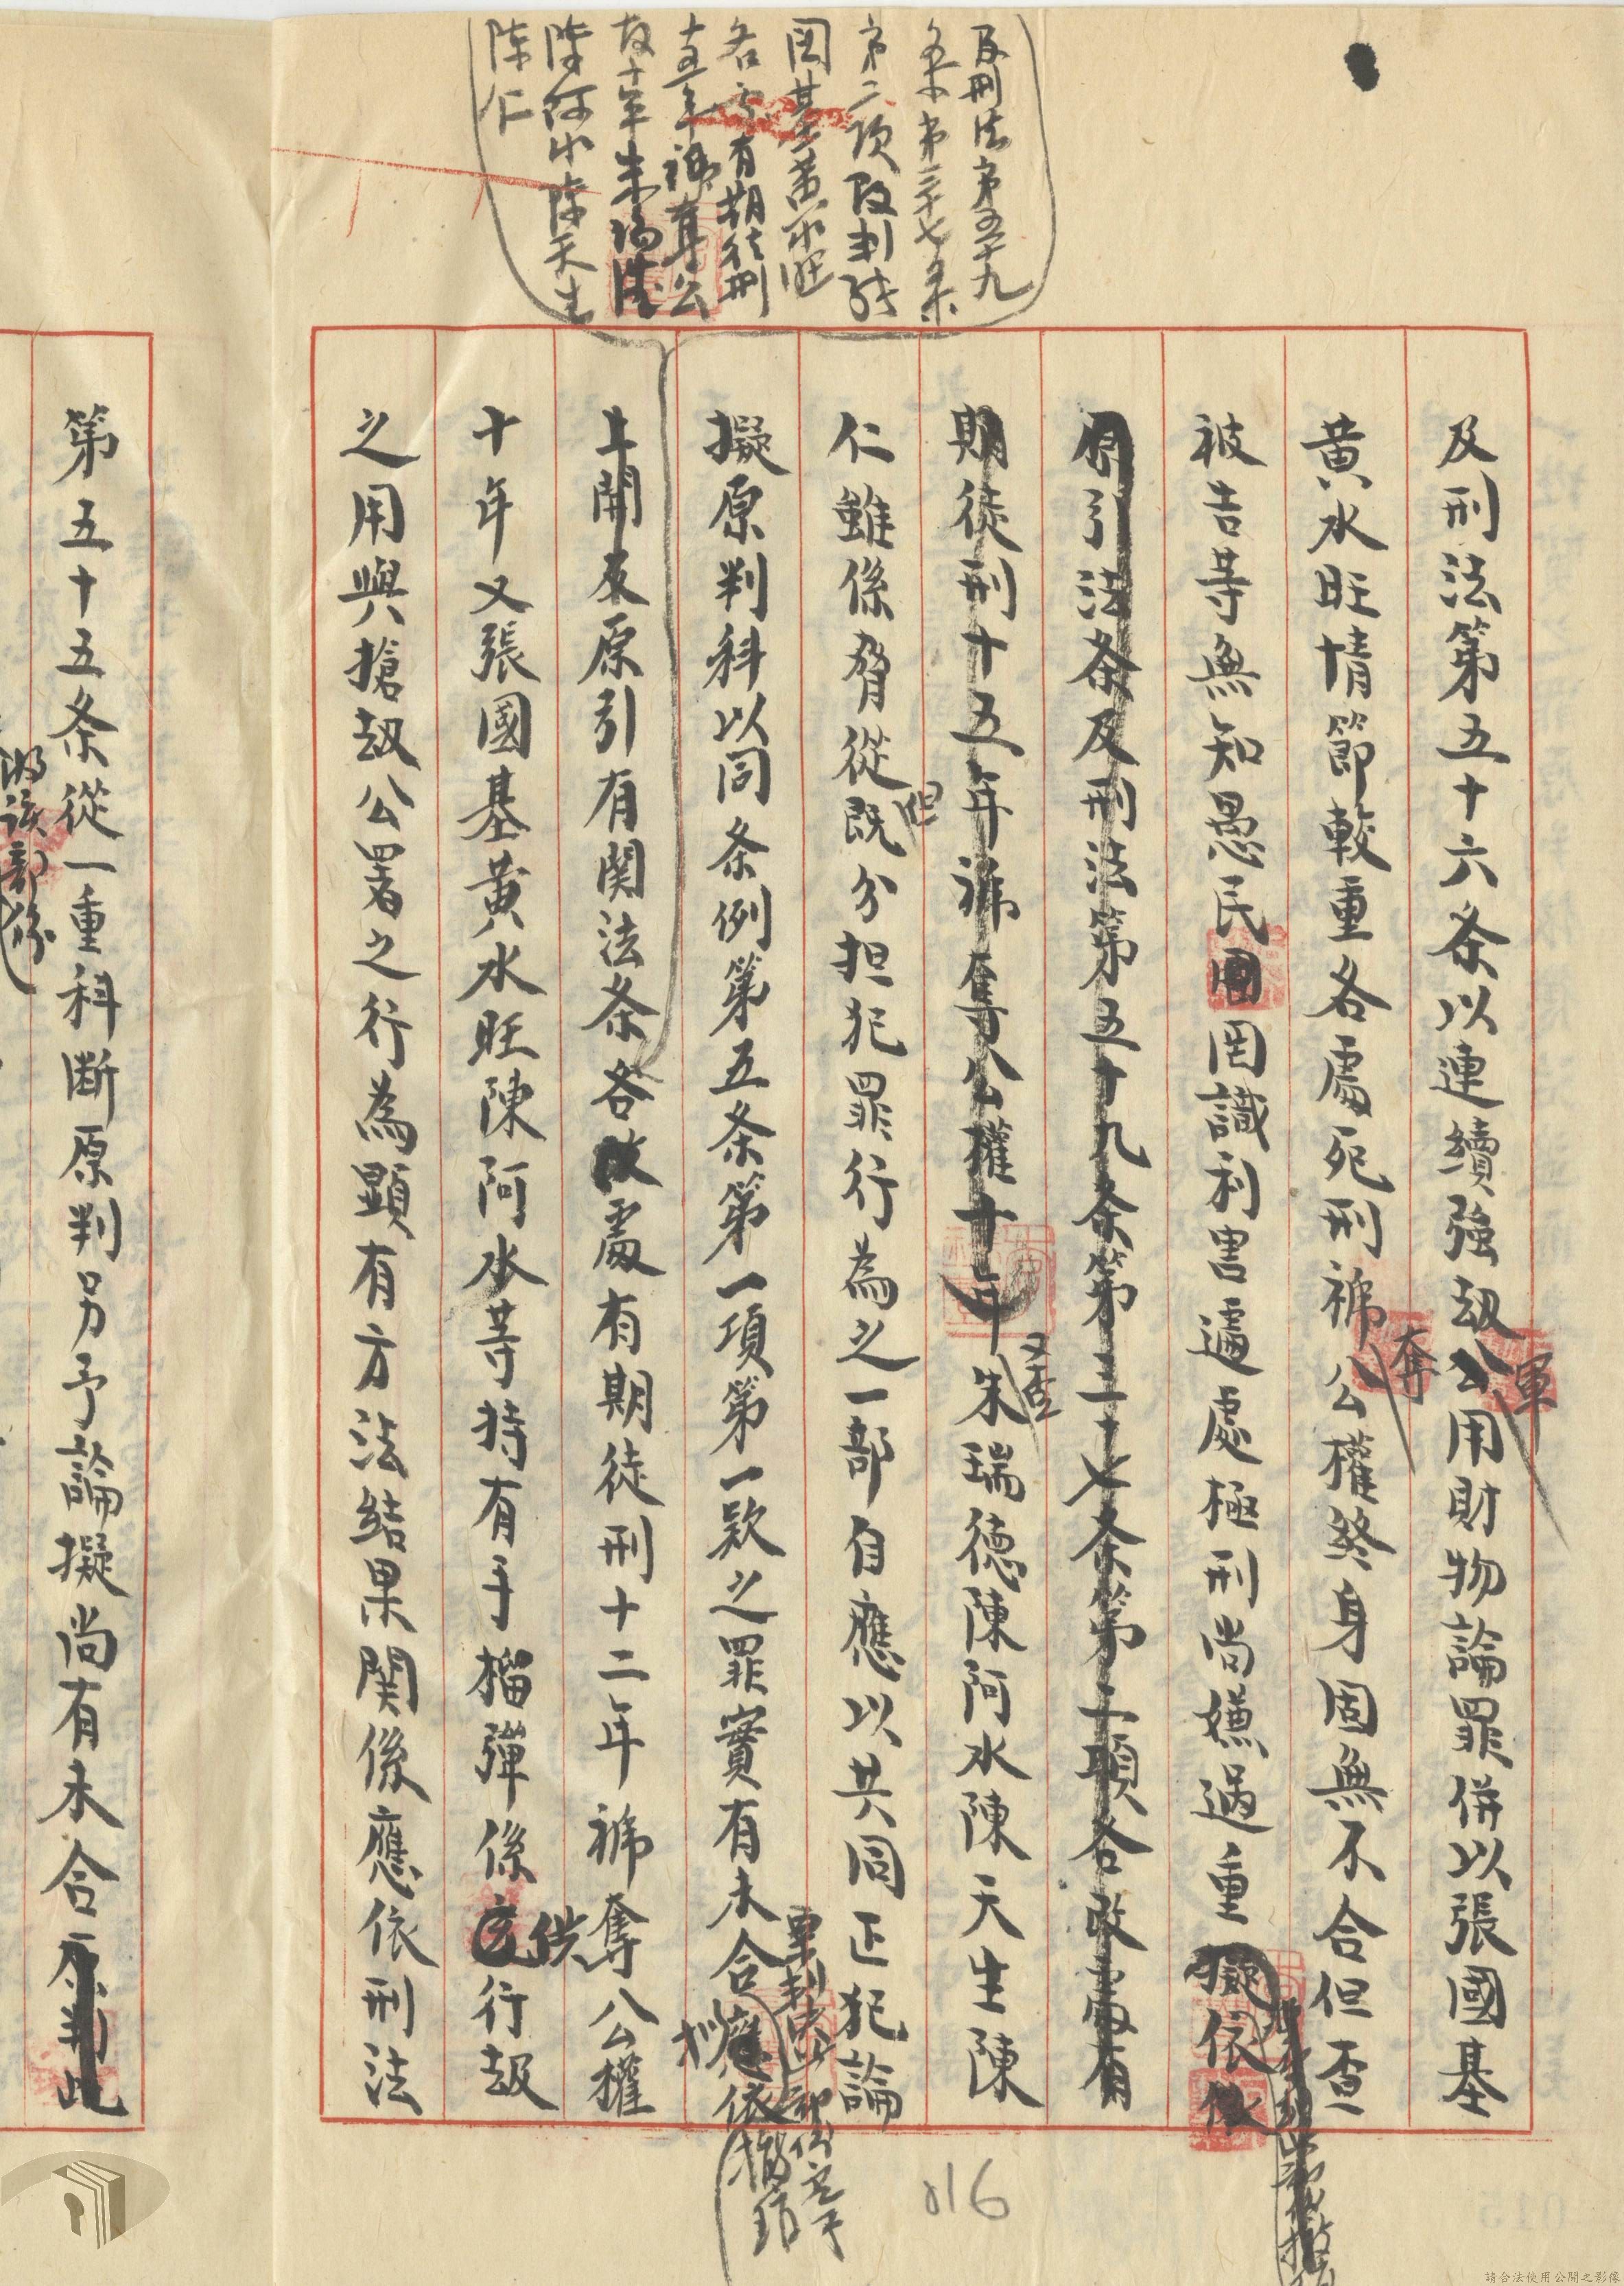 及刑法第五十九
條第三十七条
第二項改判張
國基黃水旺
各處有期徒刑
十五年褫奪公
权十年朱瑞德
陳阿水陳天生
陳仁
及刑法第五十六条以連續強劫公用財物論罪併以張國基
軍
黃水旺情節較重各處死刑褫公權終身固無不合但查
奪
被告等無知愚民罔識利害遽處極刑尚嫌過重擬依
原引法条及刑法第五十九条第三十七条第二項各改處有
期徒刑十五年褫奪公權十年朱瑞德陳阿水陳天生陳
又查
仁雖係脅從既分担犯罪行為之一部自應以共同正犯論
但
擬原判科以同条例第五条第一項第一款之罪實有未合應依
原判此部份應予撤銷
擬
上開及原引有関法条各改處有期徒刑十二年褫奪公權
十年又張國基黃水旺陳阿水等持有手榴彈係行劫
供
之用與搶劫公署之行為顯有方法結果関係應依刑法
第五十五条從一重科斷原判另予論擬尚有未合原判此
將該部份
016
請合法使用公開之影像